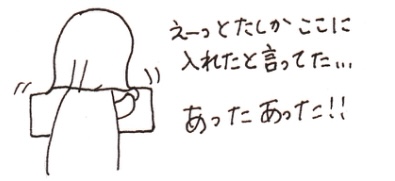 えーっとたしかここに
入れたと言ってた…
あったあった!!